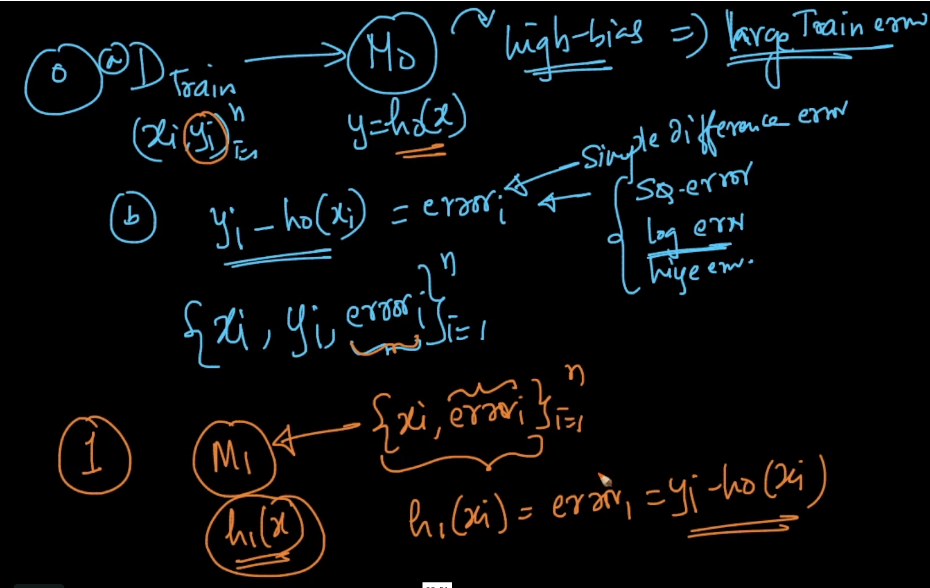 0 (a) D Train → M0 high-bias ⇒ large Train error
(xi, yi)ⁿi=1 y=h0(x)
Simple difference error
(b) yi - h0(xi) = errori ← { SQ-error
log err
hinge err.
{xi, yi, errori}ⁿi=1
1 M1 ← {xi, errori}ⁿi=1
h1(x) h1(xi) = error1 = yi - h0(xi)